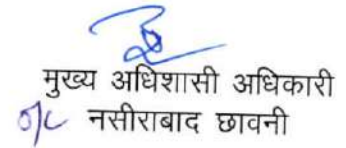 मुख्य अधिशासी अधिकारी
o/c नसीराबाद छावनी